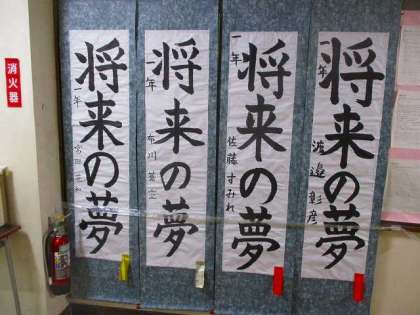 消火器
将来の夢
一年
将来の夢
一年
将来の夢
一年
佐藤すみれ
将来の夢
一年
渡邉彰彦